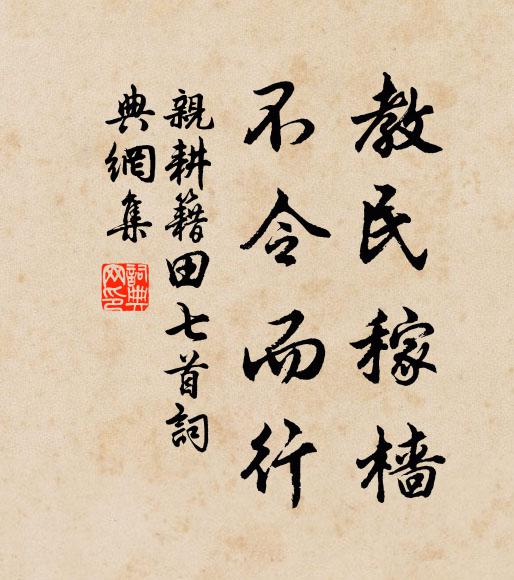 教民稼檣
不令而行
親耕籍田七首詞
典網集
詞典
网印